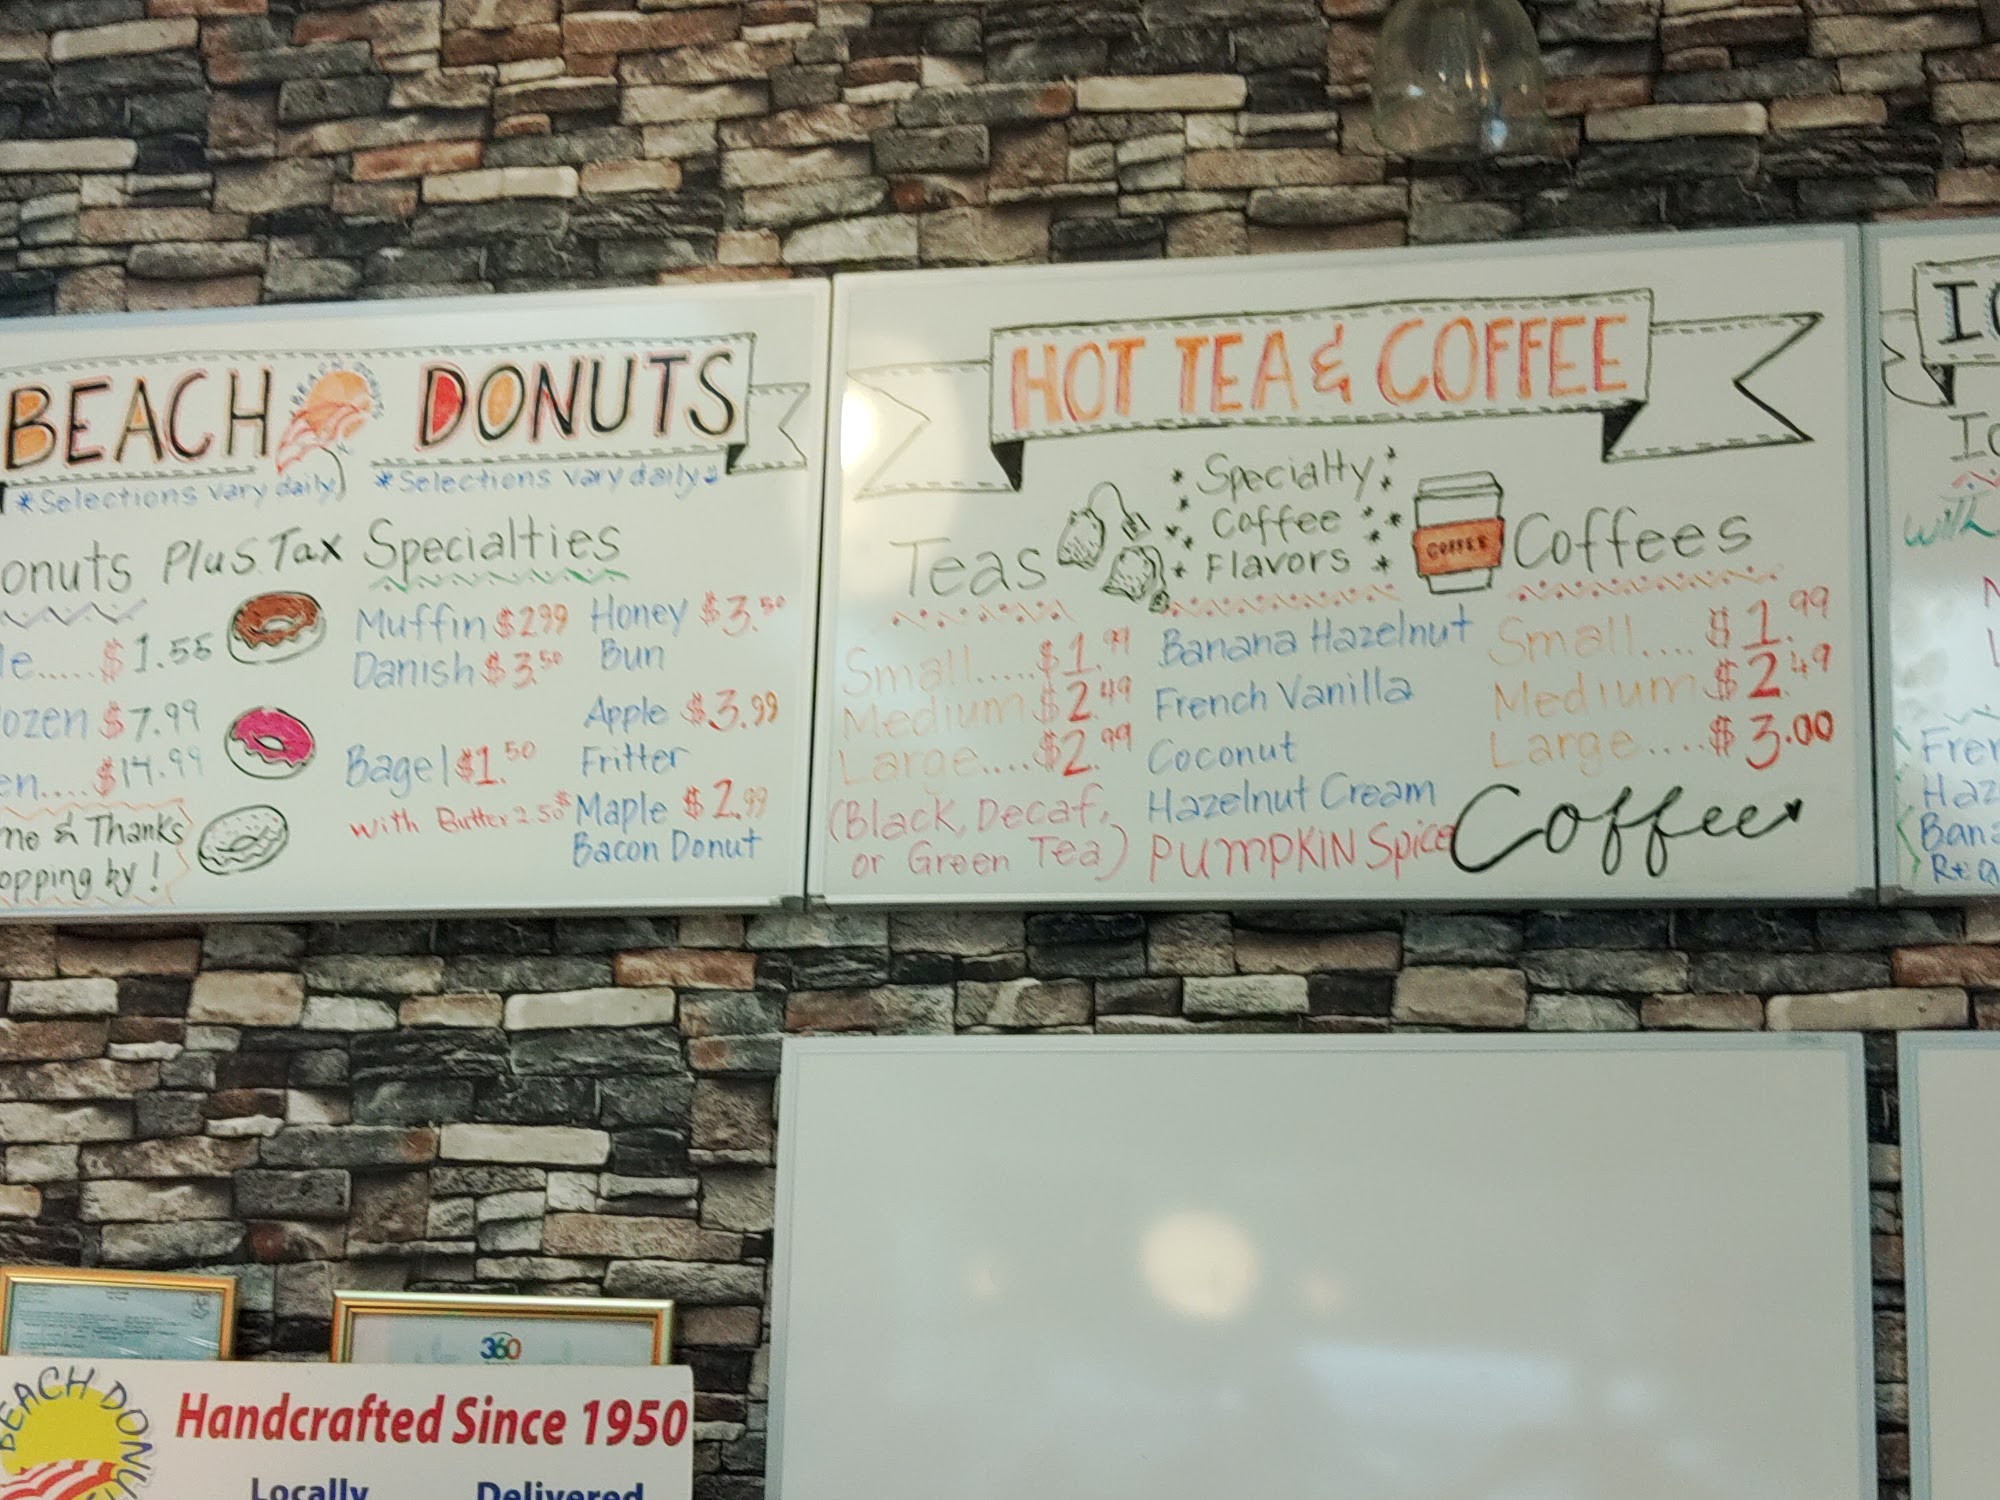 BEACH DONUTS
*Selections vary daily *Selections vary daily
onuts Plus Tax Specialties
le..... $1.55
ozen $7.99
en.... $14.99
me & Thanks
opping by!
Muffin $2.99
Danish $3.50
Bagel $1.50
with Butter 2.50$
Honey $3.50
Bun
Apple $3.99
Fritter
Maple $2.99
Bacon Donut
HOT TEA & COFFEE
Teas
Small.....$1.99
Medium $2.49
Large....$2.99
(Black, Decaf,
or Green Tea)
Specialty
Coffee
Flavors
Banana Hazelnut
French Vanilla
Coconut
Hazelnut Cream
PUMPKIN Spice
COFFEE
Coffees
Small.... $1.99
Medium $2.49
Large....$3.00
Coffee
IC
Ic
with
Fren
Haz
Bana
360
BEACH DONU
Handcrafted Since 1950
Locally Delivered